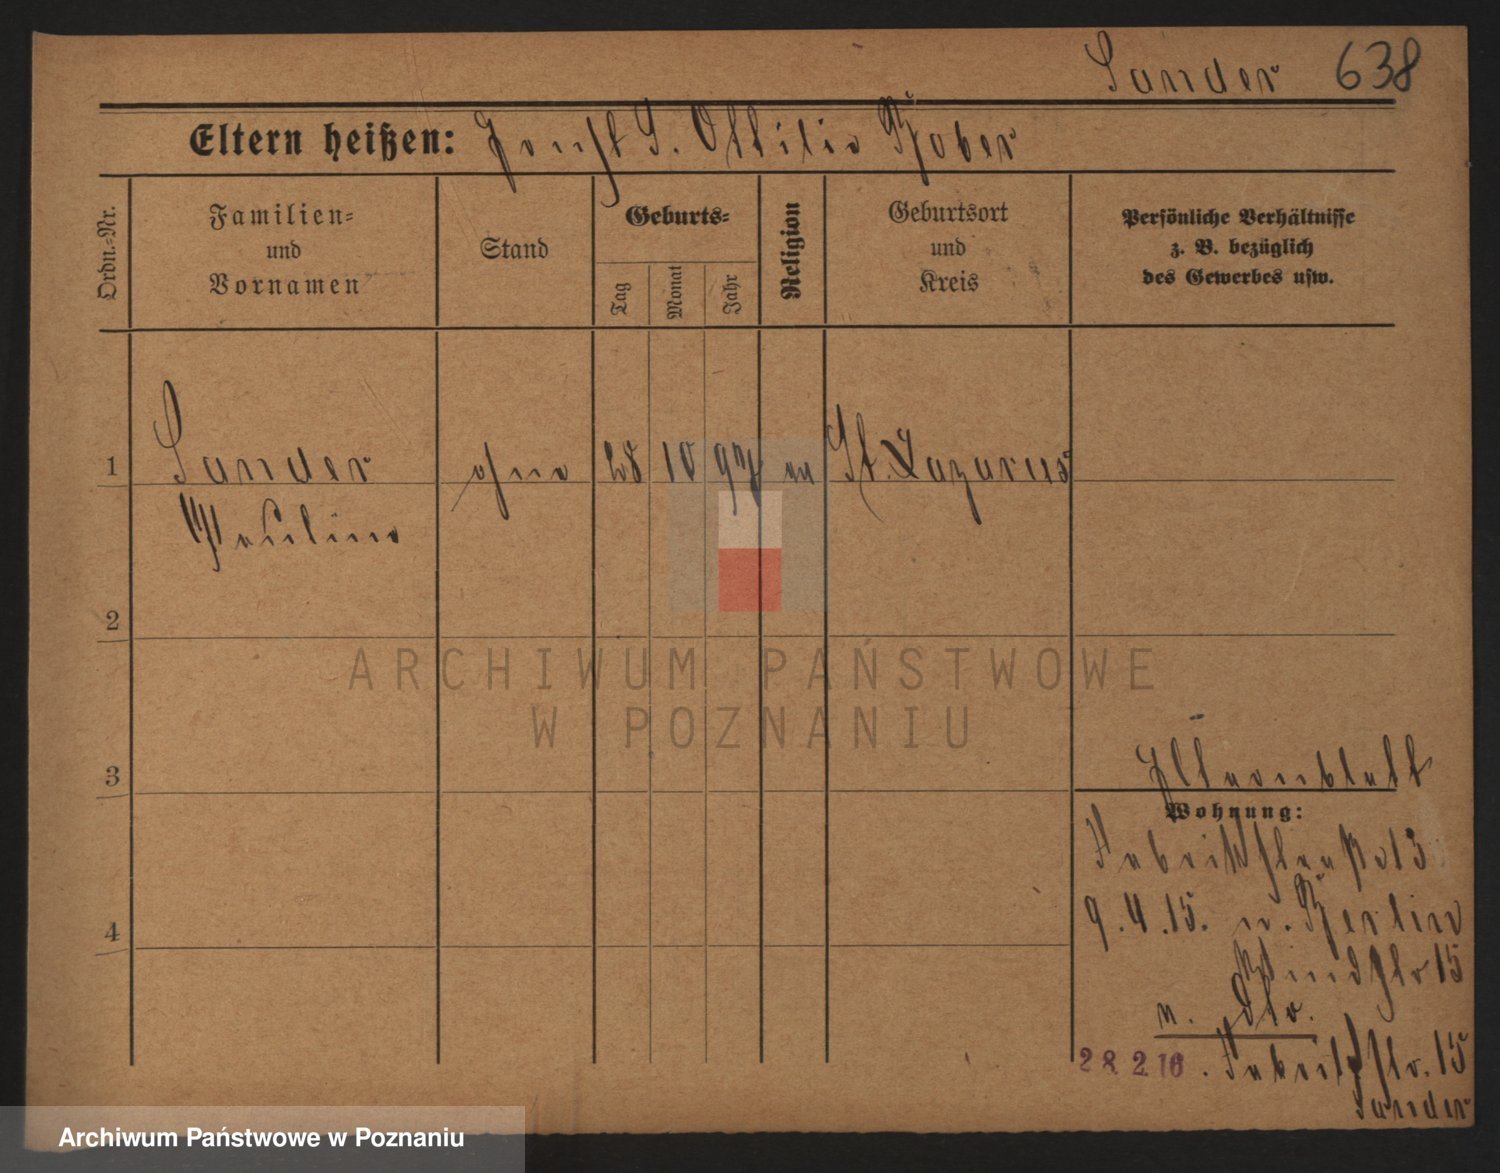 Sander 638
Eltern heißen: Ottilie
Ordn.-Nr.
Familien-
und
Vornamen
Stand
Geburts-
Tag
Monat
Jahr
Religion
Geburtsort
und
Kreis
Persönliche Verhältnisse
z. B. bezüglich
des Gewerbes usw.
1 Sander ohne 28 10 97 ev St. Lazarus
Pauline
2
ARCHIWUM PAŃSTWOWE
W POZNANIU
3
Elternblatt
Wohnung:
Fabrikstraße 13
9.4.15. n. Berlin
15
n.
28.2.16. Fabrikstr. 15
Sander
4
Archiwum Państwowe w Poznaniu